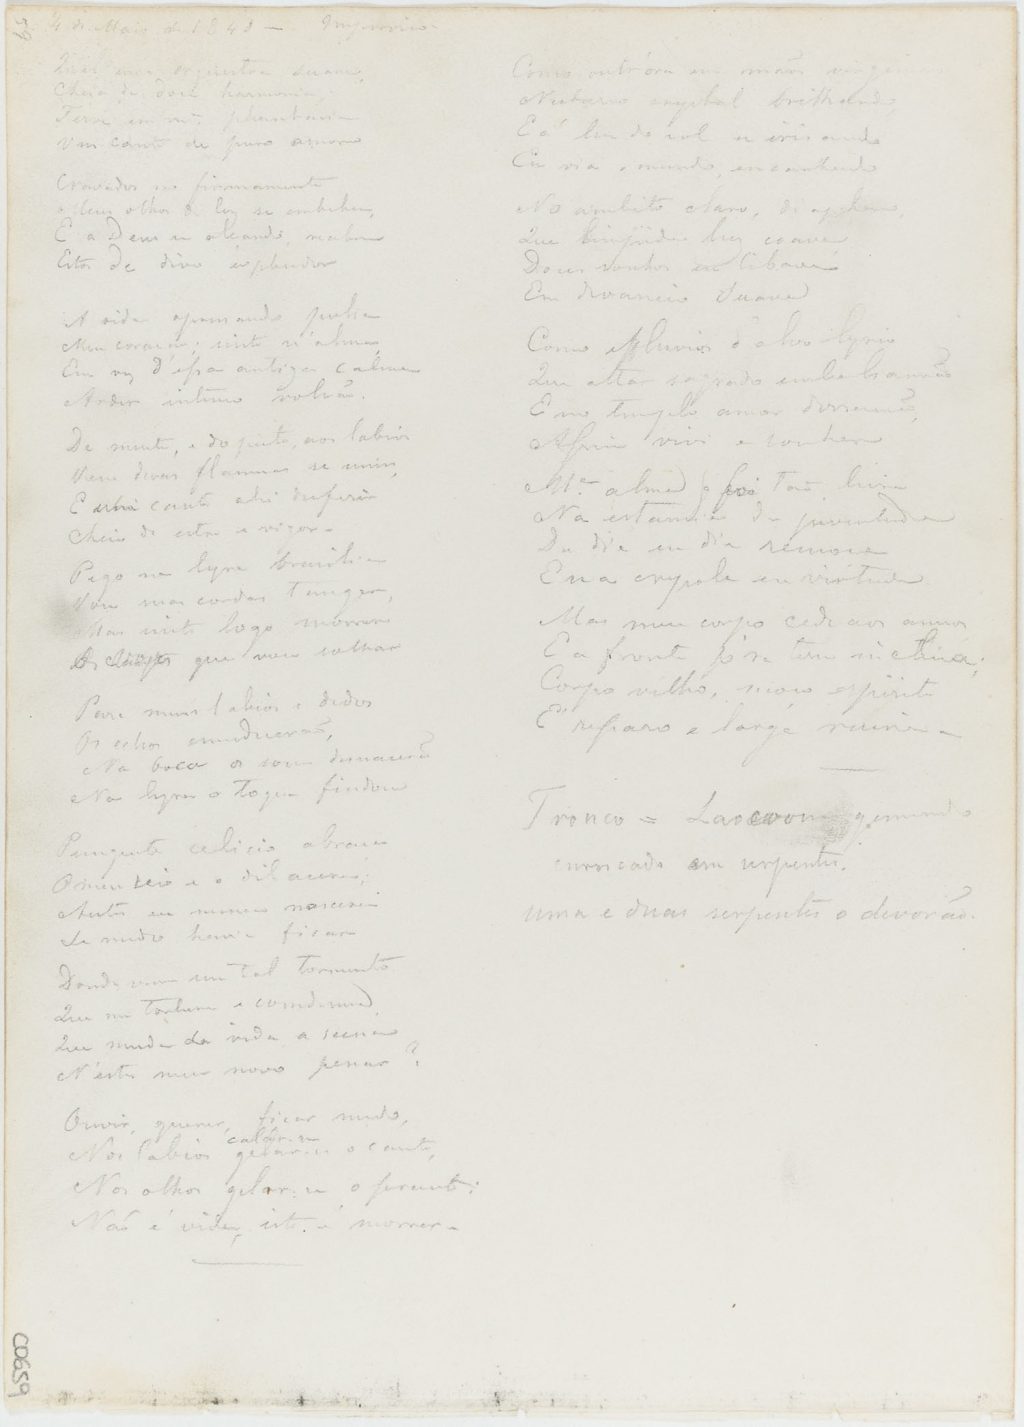 4 de Maio de 1848 — Improviso
Qual uma orquestra suave,
Cheia de doce harmonia
Ferve em m.ª phantasia
Um canto de puro amor
Cravados no firmamento
Meus olhos de luz se embebem,
E a Deus se alçando, recebem
Estos de divo esplendor
A vida apressando pulsa
Meu coração; sinto n'alma,
Em vez d'essa antiga calma
Arder intimo volcão.
Da mente, e do peito, aos labios
Vem duas flammas se unir,
E um canto alli
Cheio de estro e vigor.
Pego na lyra brasilia
Vou nas cordas tanger,
Mas sinto logo morrer
que vou soltar
Para meus labios e dedos
Os echos emudecerão,
Na boca os sons desmaiarão
Na lyra o toque findou
Pungente cilicio abraça
O meu seio e o dilacera;
Antes eu nunca nascera
Se mudo havia ficar
Donde vem um tal tormento
Que me tortura e condemna,
Que muda da vida a scena
N'este meu novo penar?
Ouvir, querer, ficar mudo,
calar-se
Nos labios gelar-se o canto,
Nos olhos gelar-se o pranto;
Não é vida, isto é morrer.
Como outr'ora em mãos virgineas
Nectareo crystal brilhando,
E á luz do sol se irisando
Eu via o mundo, encantado
No ambito claro, diaphano,
Que limpida luz coava
Doces sonhos eu libava
Em devaneio suave
Como effluvios d'alvo lyrio
Que altar sagrado embalsamão
E no templo amor derramão,
Assim vivi e sonhei
M.ª alma foi tão livre
Na estancia da juventude
De dia em dia renova
E na crysole em virtude
Mas meu corpo cede aos annos
E a fronte p'ra terra inclina;
Corpo velho, novo espirito
É reparo e larga ruina
Tronco = Laocoon gemendo
enroscado em serpentes.
uma e duas serpentes o devorão.
C0659